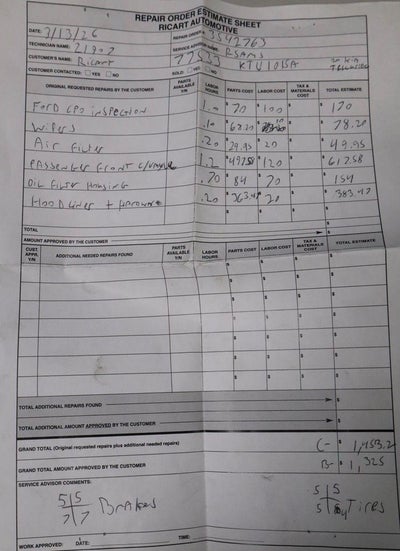 REPAIR ORDER ESTIMATE SHEET
RICART AUTOMOTIVE
DATE: 3/13/26 REPAIR ORDER # 3542763
TECHNICIAN NAME: 21902 SERVICE ADVISOR NAME: RSAMS
CUSTOMER'S NAME: Ricart 77033 KTU1085A
CUSTOMER CONTACTED: YES NO SOLD: YES NO
ORIGINAL REQUESTED REPAIRS BY THE CUSTOMER PARTS AVAILABLE Y/N LABOR HOURS PARTS COST LABOR COST TAX & MATERIALS COST TOTAL ESTIMATE
Ford CPO inspection 1.0 $ 70 $ 100 $ $ 170
Wipers .10 $ 68.20 $ 10 $ $ 78.20
Air Filter .20 $ 29.95 $ 20 $ $ 49.95
Passenger Front 1.2 $ 497.58 $ 120 $ $ 617.58
Oil Filter Housing .70 $ 84 $ 70 $ $ 154
Hood Liner + Hardware .20 $ 363.47 $ 20 $ $ 383.47
TOTAL
AMOUNT APPROVED BY THE CUSTOMER
CUST. APPR. Y/N ADDITIONAL NEEDED REPAIRS FOUND PARTS AVAILABLE Y/N LABOR HOURS PARTS COST LABOR COST TAX & MATERIALS COST TOTAL ESTIMATE
TOTAL ADDITIONAL REPAIRS FOUND $
TOTAL ADDITIONAL AMOUNT APPROVED BY THE CUSTOMER $
GRAND TOTAL (Original requested repairs plus additional needed repairs) C- $ 1,453.2
GRAND TOTAL AMOUNT APPROVED BY THE CUSTOMER B- $ 1,325
SERVICE ADVISOR COMMENTS:
5 5 5 5
7 7 Brakes 5 Tires
WORK APPROVED: DATE: TIME: